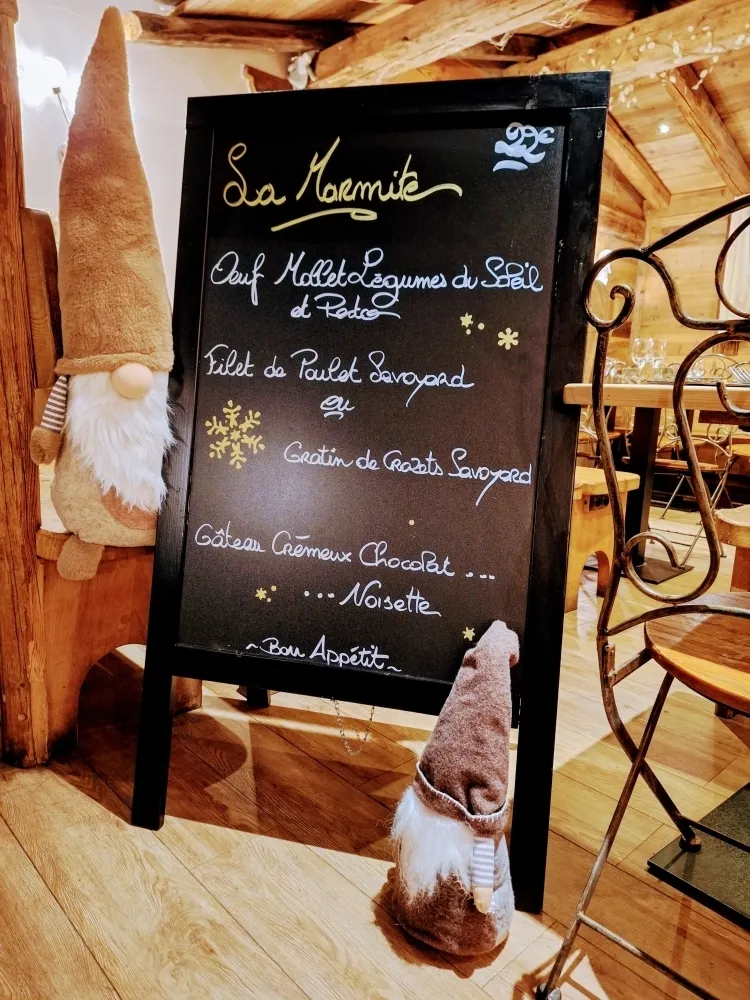 22€
La Marmite
Oeuf Mollet Légumes du Soleil
et Pedro
Filet de Poulet Savoyard
ou
Gratin de Crozets Savoyard
Gâteau Crémeux Chocolat ...
... Noisette
~Bon Appétit~